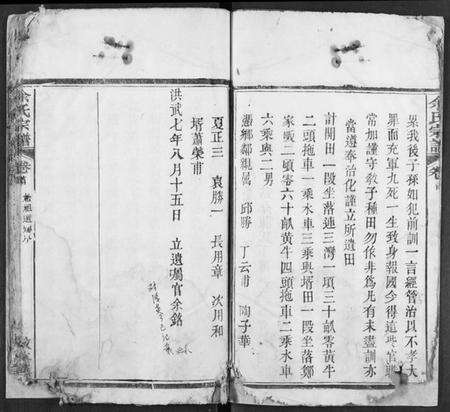 余氏宗譜 卷首
累我後子孫如犯前訓一言經管治以不孝大
罪而充軍九死一生致身報國今得這些官職
常加謹守教子種田勿依非為凡有未盡訓亦
當遵奉治化謹立所遺田
計開田一段坐落連三灣一項三十畝零黃牛
二頭拖車一乘水車三乘與壻田一段坐落鄒
家畈二頃零六十畝黃牛四頭拖車二乘水車
六乘與二男
憑鄉鄰親屬 邱勝 丁云甫 陶子華
夏正三 袁勝一 長用章 沈川和
壻蕭榮甫
洪武七年八月十五日 立遺囑官余銘
余氏宗譜 卷首